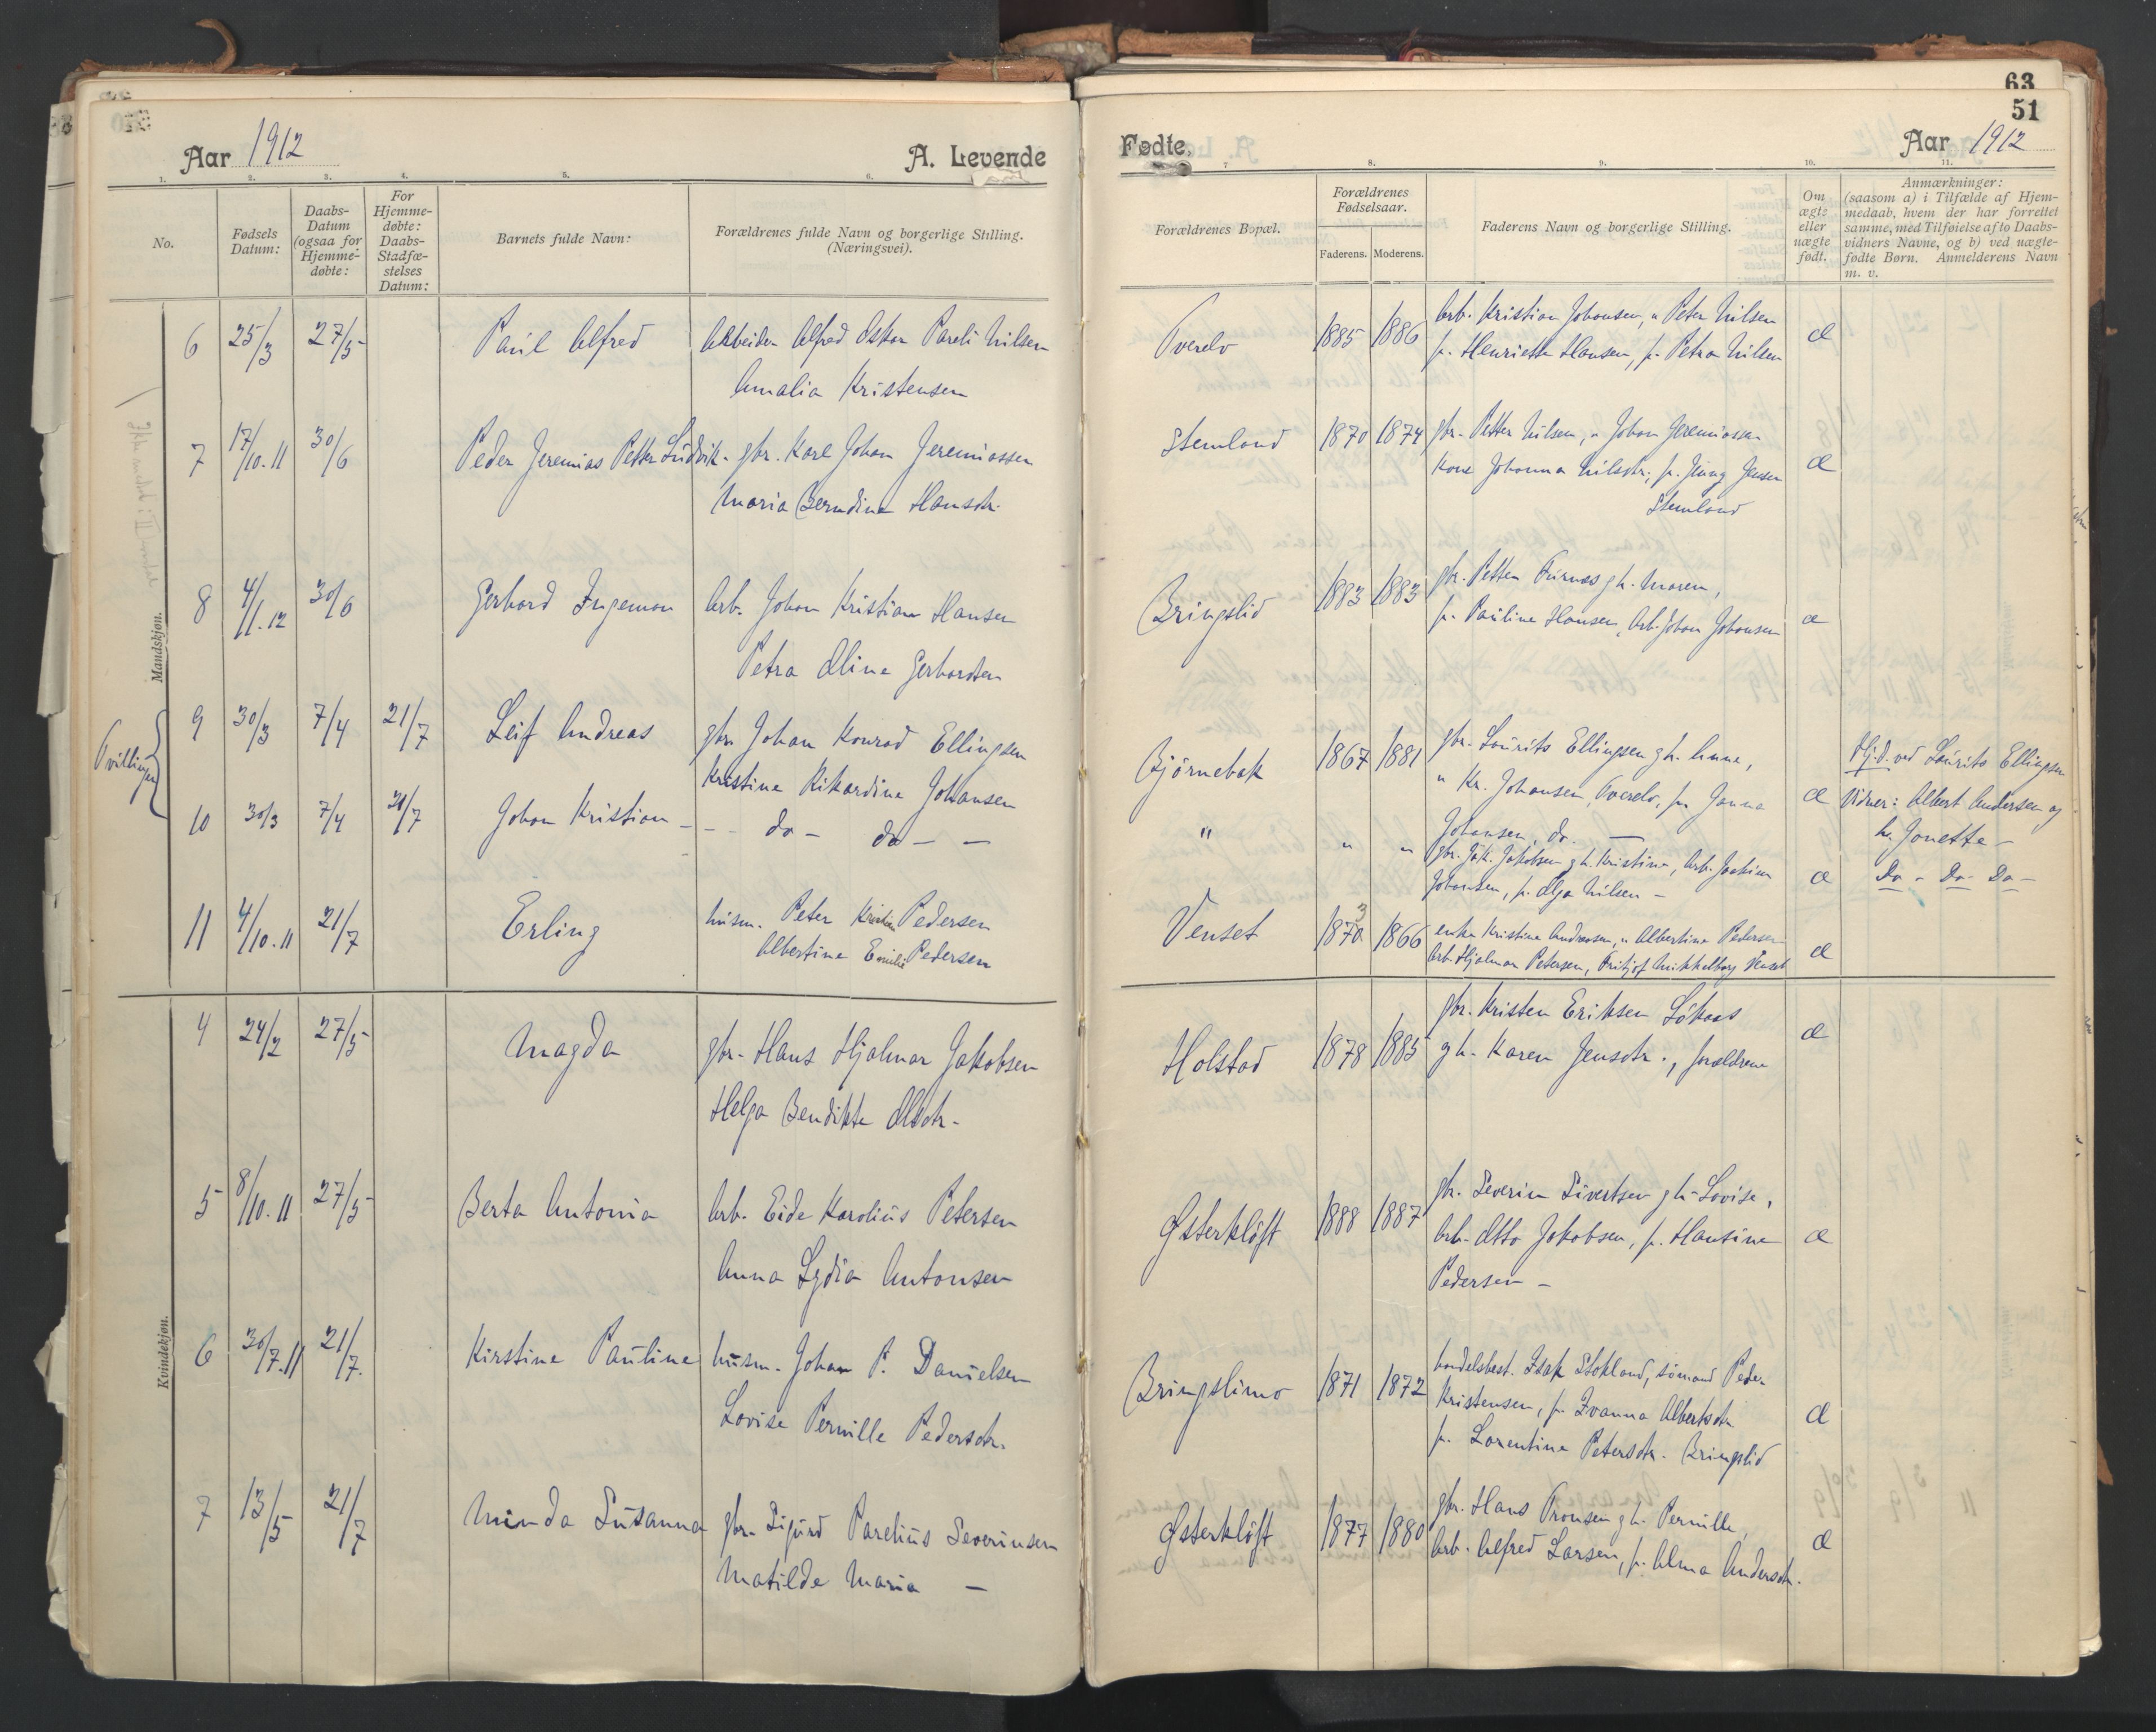 63
51
Aar 1912
A. Levende
1. 2. 3. 4. 5. 6.
No.
Fødsels Datum:
Daabs-Datum (ogsaa for Hjemme-døbte:
For Hjemme-døbte: Daabs-Stadfæ-stelses Datum:
Barnets fulde Navn:
Forældrenes fulde Navn og borgerlige Stilling. (Næringsvei).
Mandskjøn.
6 25/3 27/5 Paul Alfred Arbeider Alfred Oskar Pareli Nilsen
Amalia Kristensen
7 17/10.11 30/6 Peder Jeremias Petter Ludvik gbr. Karl Johan Jeremiassen
Maria Berndine Hansdtr.
8 4/1.12 30/6 Gerhard Ingeman Arb. Johan Kristian Hansen
Petra Oline Gerhardsen
Tvillinger
9 30/3 7/4 21/7 Leif Andreas gbr. Johan Konrad Ellingsen
Kristine Rikardine Johansen
10 30/3 7/4 21/7 Johan Kristian - - - do - do - -
11 4/10.11 21/7 Erling husm. Peter Kristian Pedersen
Albertine Emilie Pedersen
Kvindekjøn.
4 24/2 27/5 Magda gbr. Hans Hjalmar Jakobsen
Helga Bendikte Olsdtr.
5 8/10.11 27/5 Berta Antonia Arb. Eide Karolius Petersen
Anna Lydia Antonsen
6 30/7.11 21/7. Kirstine Pauline husm. Johan P. Danielsen
Lovise Pernille Pedersdtr.
7 13/5 21/7 Minda Susanna gbr. Sigurd Parelius Severinsen
Matilde Maria -
Fødte.
Aar 1912
7 8. 9. 10. 11.
Forældrenes Bopæl.
Forældrenes Fødselsaar.
Faderens. Moderens.
Faderens Navn og borgerlige Stilling.
Om ægte eller uægte født.
Anmærkninger:
(saasom a) i Tilfælde af Hjem-
medaab, hvem der har forrettet
samme, med Tilføielse af to Daabs-
vidners Navne, og b) ved uægte-
fødte Børn. Anmelderens Navn
m. v.
Tverelv 1885 1886 Arb. Kristian Johansen, " Peter Nilsen
p. Henriette Hansen, p. Petra Nilsen
Stemland 1870 1874 gbr. Petter Nilsen, " Johan Jeremiassen
Kone Johanna Nilsdtr., p. Jensen
Stemland
Bringslid 1883 1883 gbr. Petter Furnes g h. Maren,
p. Pauline Hansen, Arb. Johan Johansen
Björnebak 1867 1881 gbr. Laurits Ellingsen g h. Anna,
" Kr. Johansen, Tverelv, p. Janna
Johansen, do. -
Hj.d. ved Laurits Ellingsen
Vidner: Albert Andersen og
h. Jonette -
" " " gbr. Jak. Jakobsen g h. Kristine, Arb. Joakim
Johansen, p. Olga Nilsen - Do - Do - Do -
Venset 1870 3 1866 enke Kristine Andreasen, " Albertine Pedersen
Arb. Hjalmar Petersen, Fritjof Mikkelborg Venset
Holstad 1878 1885 gbr. Kristen Eriksen Løkaas
g h. Karen Jensdtr., forældrene
Østerkløft 1888 1887 gbr. Severin Sivertsen g h. Lovise,
Arb. Otto Jakobsen, p. Hansine
Pedersen -
Bringslimo 1871 1872 handelsbest. Isak Stokland, sömand Peder
Kristensen, p. Ivanna Albertsdtr.
p. Lorentine Petersdtr. Bringslid
Østerkløft 1877 1880 gbr. Hans Tronsen g h. Pernille,
Arb. Alfred Larsen, p. Alma Andersdtr.